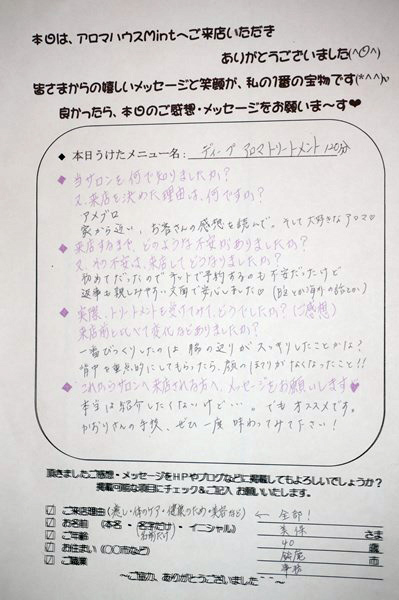 本日は、アロマハウスMintへご来店いただき
ありがとうございました(^O^)
皆さまからの嬉しいメッセージと笑顔が、私の1番の宝物です(*^^*)v
良かったら、本日のご感想・メッセージをお願いま〜す♥
◆ 本日うけたメニュー名: ディープ アロマトリートメント 120分
◆ 当サロンを何で知りましたか?
又、来店を決めた理由は、何ですか?
アメブロ
家から近い、お客さんの感想を読んで。そして大好きなアロマ♡
◆ 来店するまで、どのような不安がありましたか?
又、その不安は、来店してどうなりましたか?
初めてだったのでネットで予約するのも不安だったけど
返事も親しみやすい文面で安心しました♡
◆ 実際、トリートメントを受けてみて、どうでしたか?(ご感想)
来店前と比べて変化などありましたか?
一番びっくりしたのは 脇の辺りがスッキリしたことかな?
背中を重点的にしてもらったら、顔のほてりがなくなったこと!!
◆ これからサロンへ来店される方へ、メッセージをお願いします♥
本当は紹介したくないけど…。でもオススメです。
かおりさんの手技、ぜひ一度 味わってみて下さい!
頂きましたご感想・メッセージをHPやブログなどに掲載してもよろしいでしょうか?
掲載可能な項目にチェック&ご記入 お願いいたします。
☑ ご来店理由(癒し・体のケア・健康のため・美容など) ← 全部!
☑ お名前 (本名・名字だけ・イニシャル) 美保 さま
名前だけ
☑ ご年齢 40 歳
☑ お住まい (〇〇市など) 市
☑ ご職業 事務
〜ご協力、ありがとうございました〜